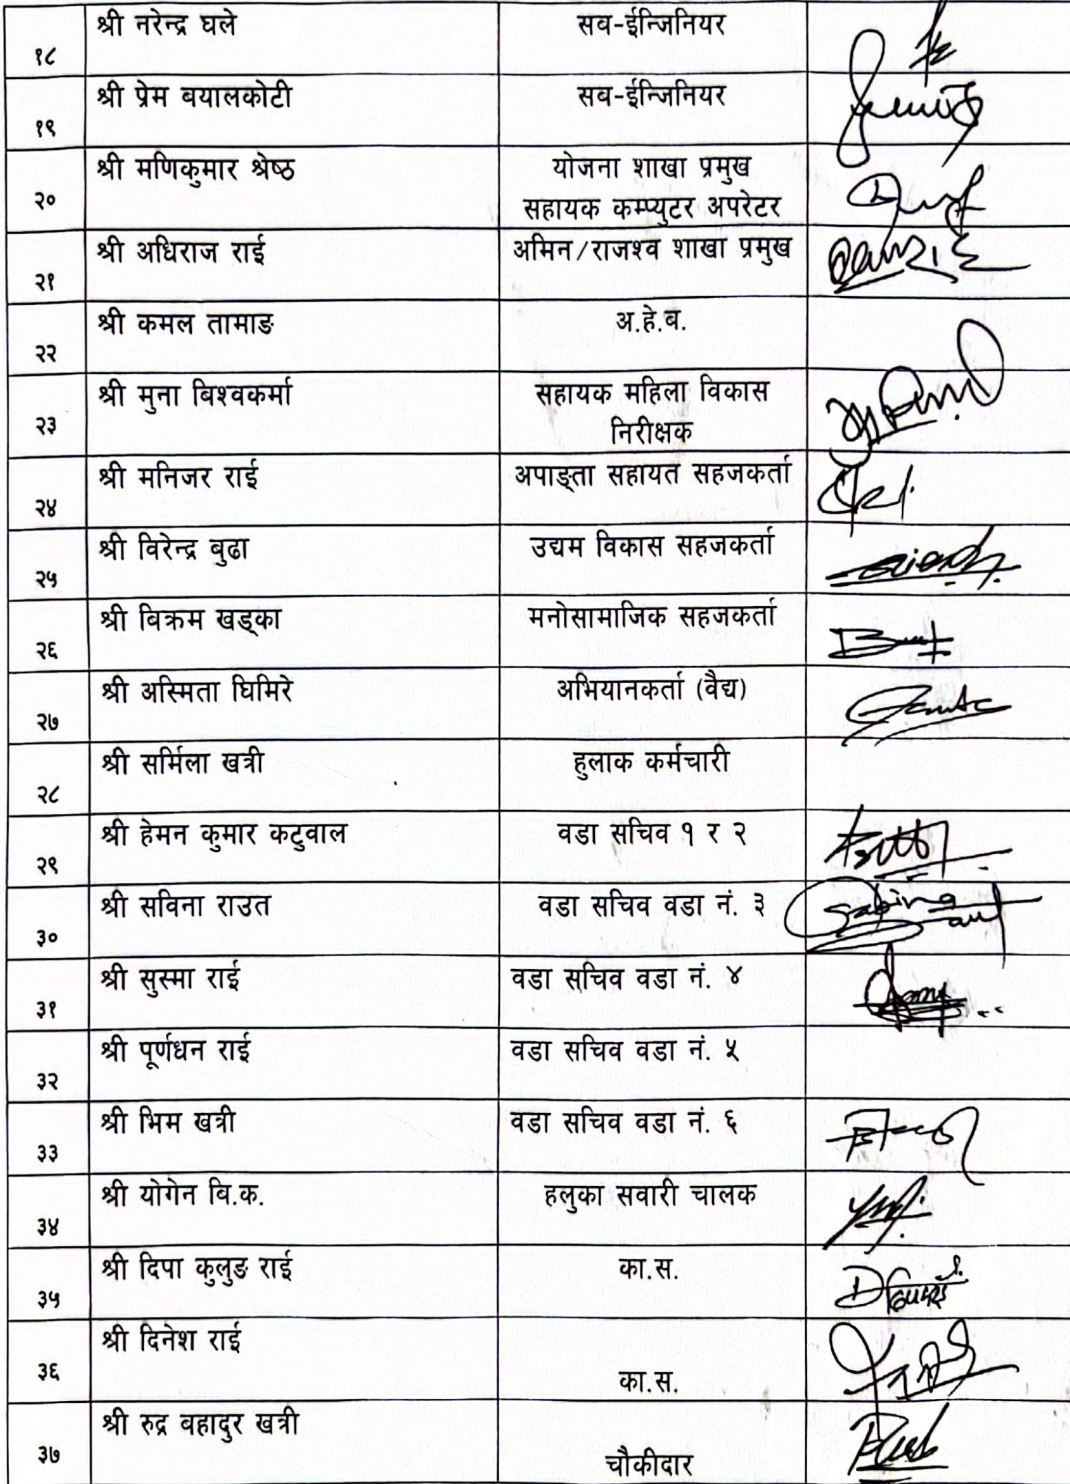 १८ श्री नरेन्द्र घले सव-ईन्जिनियर
१९ श्री प्रेम बयालकोटी सव-ईन्जिनियर
२० श्री मणिकुमार श्रेष्ठ योजना शाखा प्रमुख
सहायक कम्प्युटर अपरेटर
२१ श्री अधिराज राई अमिन/राजश्व शाखा प्रमुख
२२ श्री कमल तामाङ अ.हे.ब.
२३ श्री मुना बिश्वकर्मा सहायक महिला विकास
निरीक्षक
२४ श्री मनिजर राई अपाङ्ता सहायत सहजकर्ता
२५ श्री विरेन्द्र बुढा उद्यम विकास सहजकर्ता
२६ श्री विक्रम खड्का मनोसामाजिक सहजकर्ता
२७ श्री अस्मिता घिमिरे अभियानकर्ता (वैद्य)
२८ श्री सर्मिला खत्री हुलाक कर्मचारी
२९ श्री हेमन कुमार कटुवाल वडा सचिव १ र २
३० श्री सविना राउत वडा सचिव वडा नं. ३ Sabina
३१ श्री सुस्मा राई वडा सचिव वडा नं. ४
३२ श्री पूर्णधन राई वडा सचिव वडा नं. ५
३३ श्री भिम खत्री वडा सचिव वडा नं. ६
३४ श्री योगेन वि.क. हलुका सवारी चालक
३५ श्री दिपा कुलुङ राई का.स.
३६ श्री दिनेश राई का.स.
३७ श्री रुद्र बहादुर खत्री चौकीदार